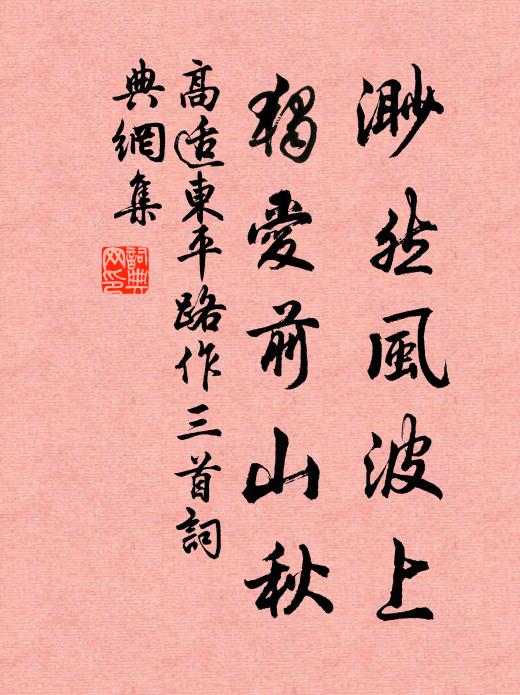 渺然風波上
獨愛前山秋
高适東平路作三首詞
典網集
詞典
网印